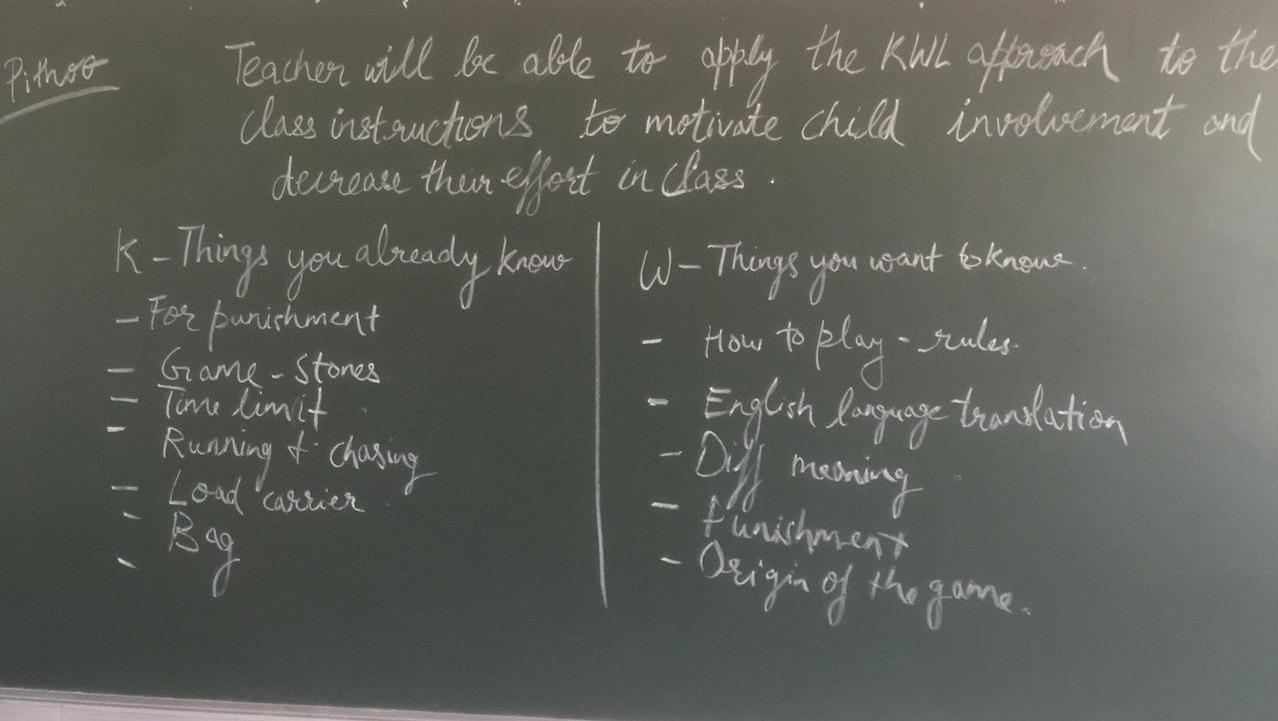 Pithoo
Teacher will be able to apply the KWL approach to the
class instructions to motivate child involvement and
decrease their effort in class.
K - Things you already know
- For punishment
- Game - stones
- Time limit
- Running & chasing
- Load carrier
- Bag
-
W - Things you want to know.
- How to play - rules.
- English language translation
- Diff meaning
- Punishment
- Origin of the game.